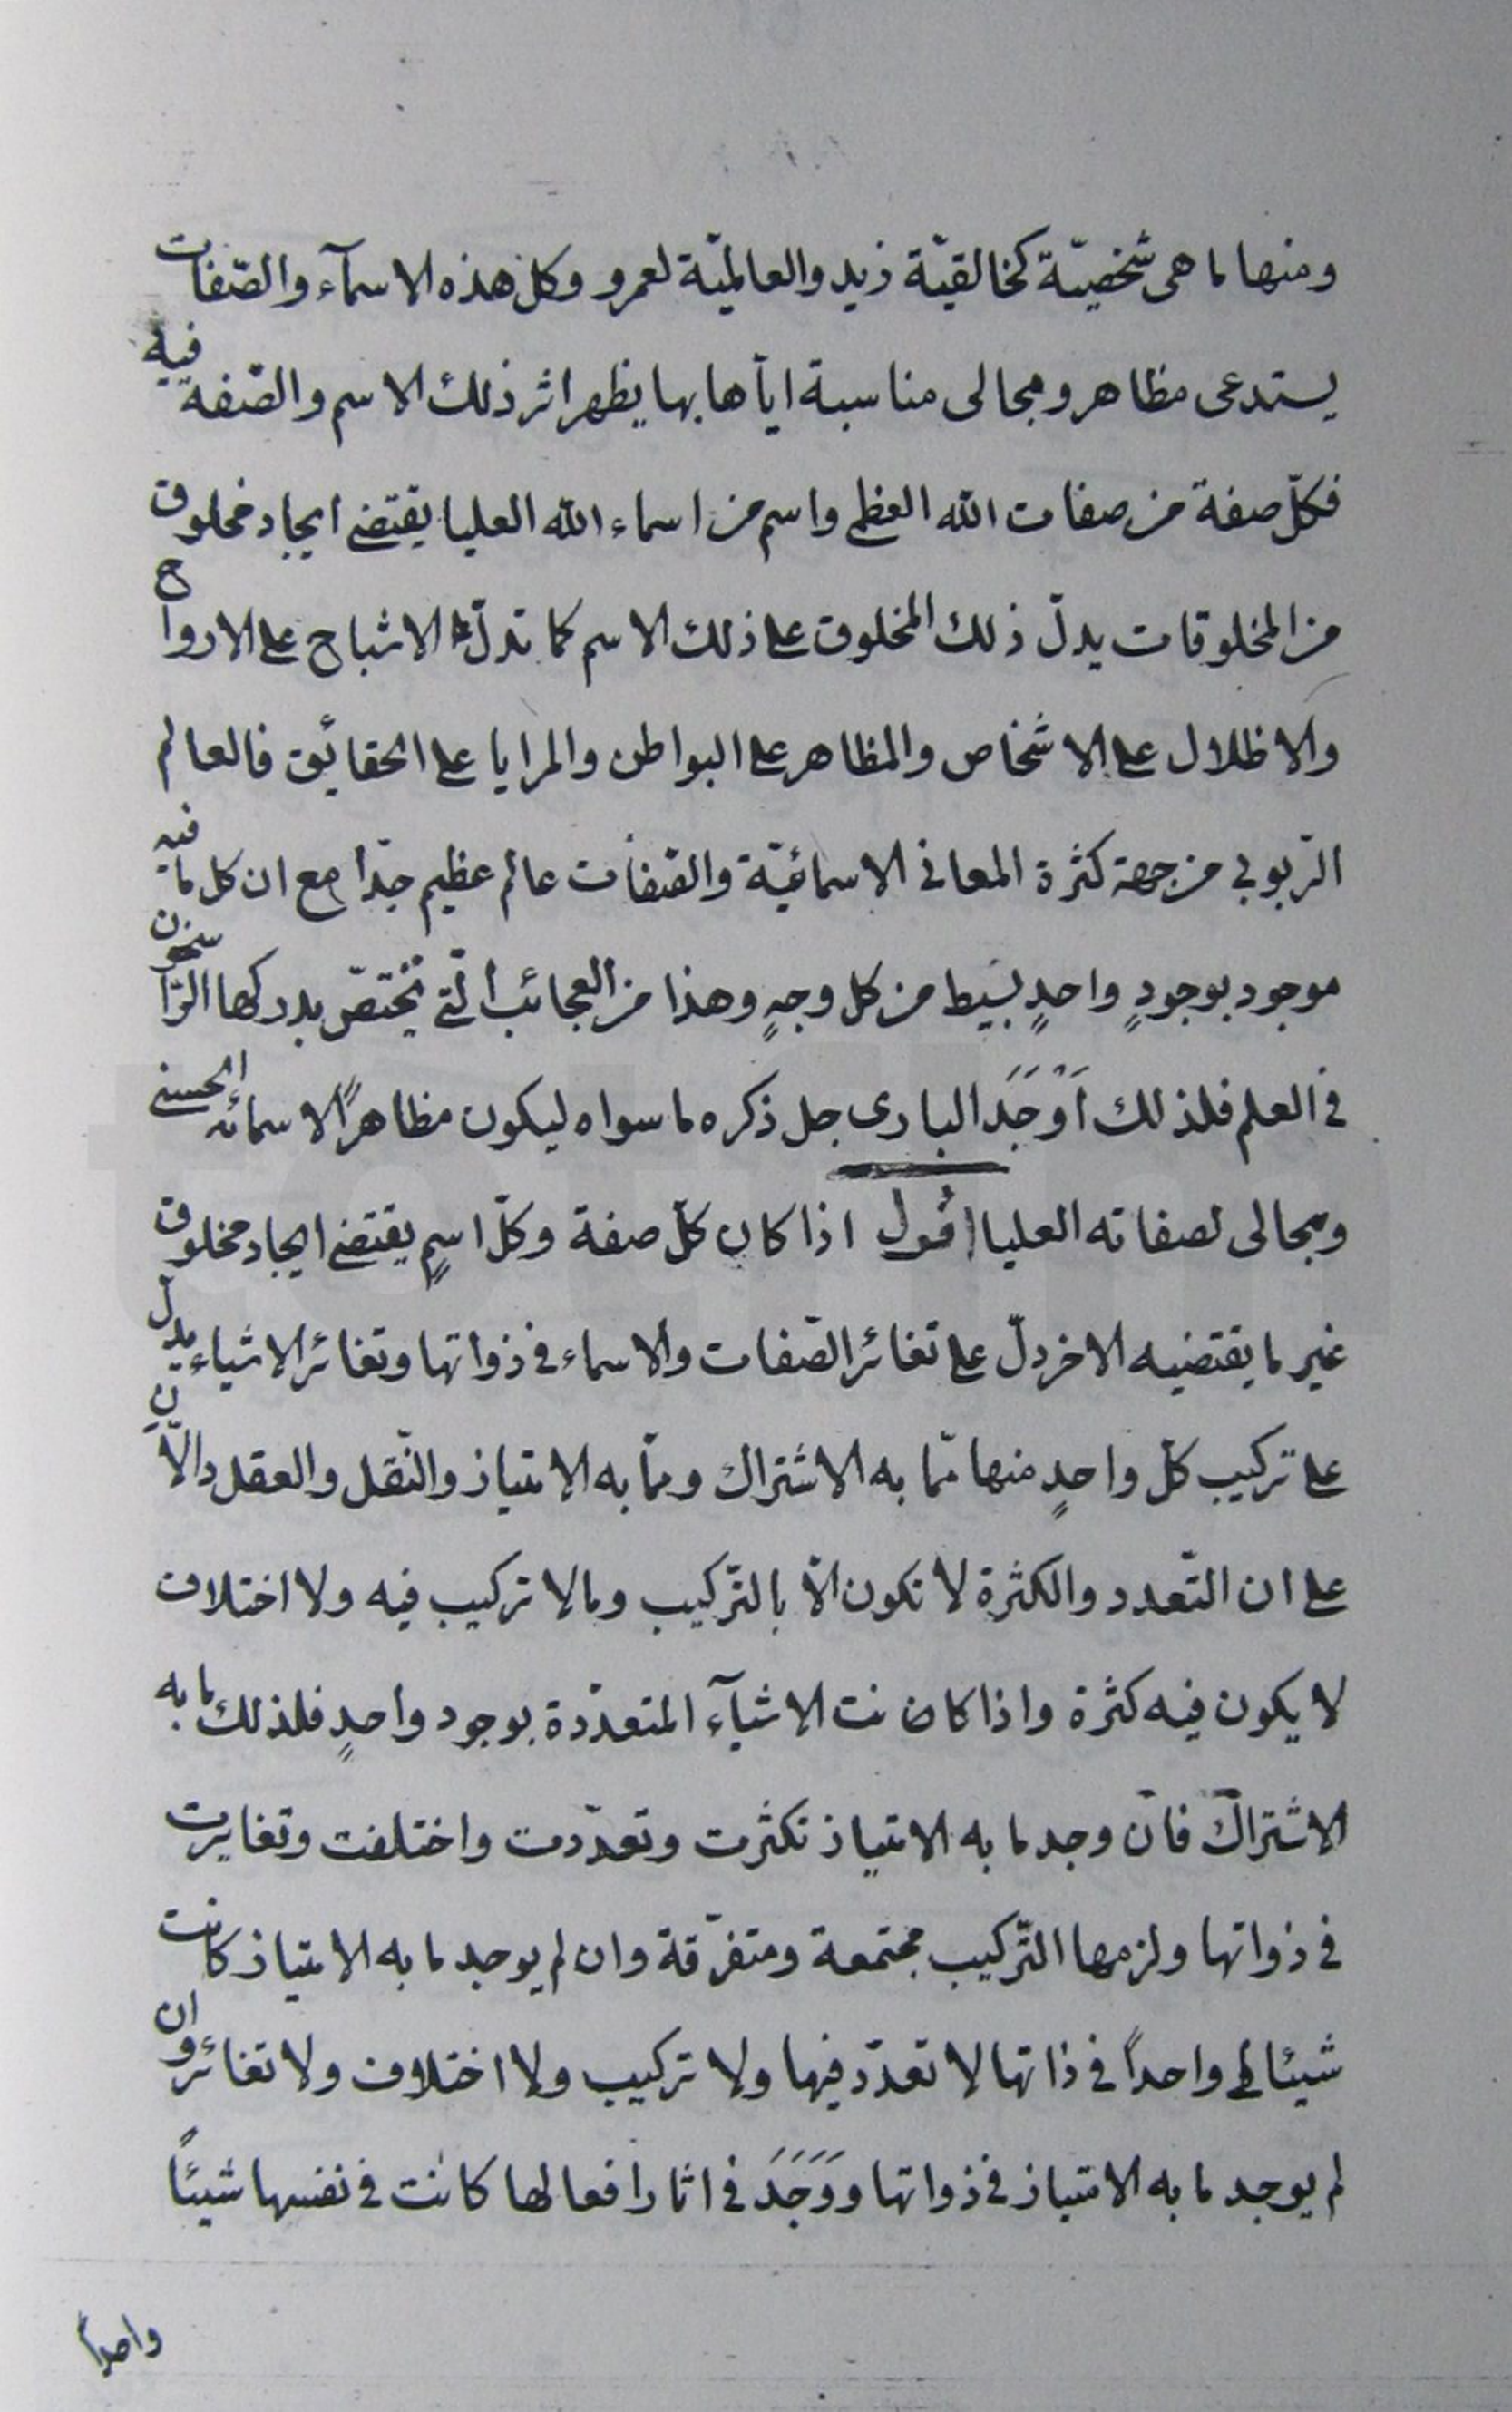 ومنها ما هى شخصيّة كخالقيّة زيد والعالميّة لعمرو وكل هذه الاسمآء والصّفات
يستدعى مظاهر ومجالى مناسبة ايّاها بها يظهر اثر ذلك الاسم والصّفة فيه
فكلّ صفة من صفات الله العظمى واسم من اسماء الله العليا يقتضى ايجاد مخلوق
من المخلوقات يدلّ ذلك المخلوق على ذلك الاسم كما تدلّ الاشباح على الارواح
والاظلال على الاشخاص والمظاهر على البواطن والمرايا على الحقائق فالعالم
الرّبوبي من جهة كثرة المعانى الاسمائيّة والصّفات عالم عظيم جدّا مع ان كل ما فيه
موجود بوجودٍ واحدٍ بسيط من كل وجهٍ وهذا من العجائب الّتى يختصّ بدركها الرّاسخون
فى العلم فلذلك اَوْجَدَ البارى جل ذكره ما سواه ليكون مظاهرًا لاسمائه الحسنى
ومجالى لصفاته العليا اقول اذا كان كلّ صفة وكلّ اسمٍ يقتضى ايجاد مخلوق
غير ما يقتضيه الاخر دلّ على تغائر الصّفات والاسماء فى ذواتها وتغائر الاشياء يدل
على تركيب كلّ واحدٍ منها ممّا به الاشتراك وممّا به الامتياز والنّقل والعقل دالّان
على ان التّعدد والكثرة لا تكون الّا بالتّركيب وما لا تركيب فيه ولا اختلاف
لا يكون فيه كثرة واذا كانت الاشيآء المتعدّدة بوجود واحدٍ فلذلك ما به
الاشتراك فان وجد ما به الامتياز تكثرت وتعدّدت واختلفت وتغايرت
فى ذواتها ولزمها التّركيب مجتمعة ومتفرّقة وان لم يوجد ما به الامتياز كانت
شيئا واحداً فى ذاتها لا تعدّد فيها ولا تركيب ولا اختلاف ولا تغائر وان
لم يوجد ما به الامتياز فى ذواتها ووَجَدَ فى اثار افعالها كانت فى نفسها شيئًا
واحداً